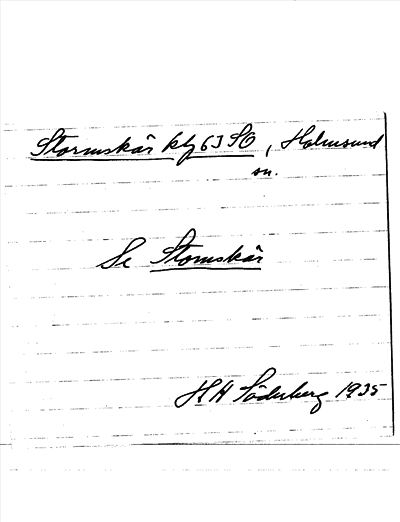 Stormskär kbl 63 SO, Holmsund
sn.
Se Stormskär
H H Söderberg 1935